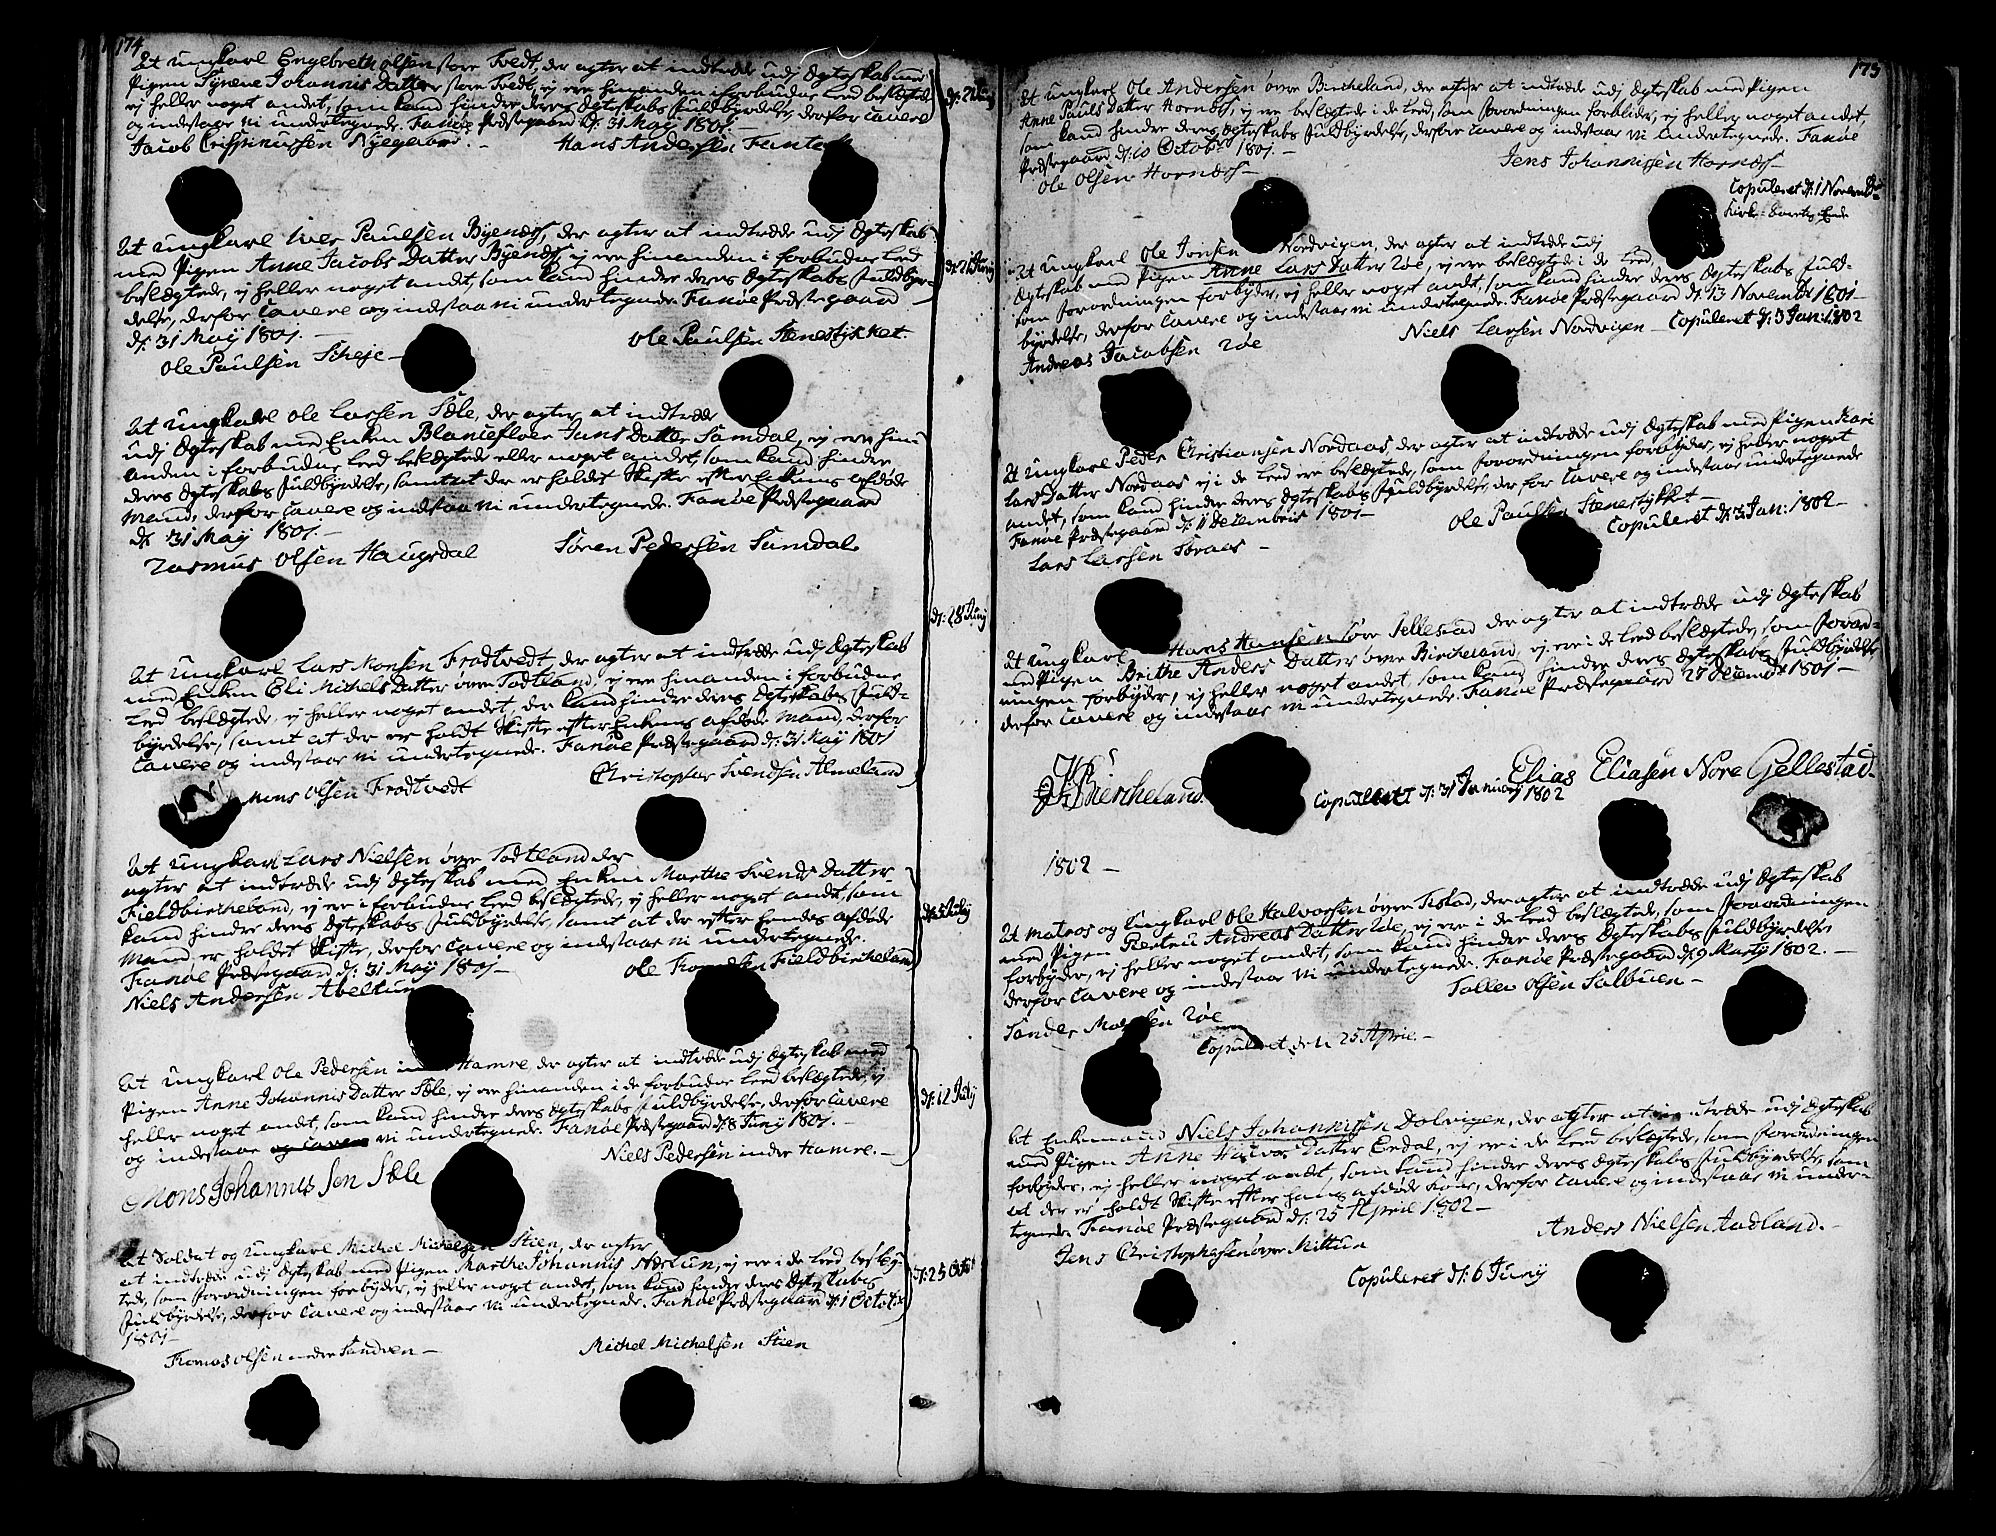 174
At ungkarl Engebreth olsen store Tvedt, der agter at indtræde udj Ægteskab med
Pigen Syneve Johannis Datter store Tvedt, ej ere hinanden i forbudne Leed beslægtede
ej heller noget andet, som kand hindre deres Ægteskabs Fuldbyrdelse, derfor Cavere
og indestaar vi undertegnede. Fanøe Præstegaard d: 31 May 1801.
Jacob Nyegaard. Hans Andersen
d: 21 Juny
At ungkarl Iver Paulsen Byenæs, der agter at indtræde udj Ægteskab
med Pigen Anne Jacobs Datter Byenæs, ej ere hinanden i forbudne Leed
beslægtede, ej heller noget andet, som kand hindre deres Ægteskabs Fuldbyr-
delse, derfor Cavere og indestaa vi undertegnede. Fanøe Præstegaard
d: 31 May 1801.
Ole Paulsen Scheje Ole Paulsen Stenestykket.
d: 21 Juny
At ungkarl Ole Larsen Sæle, der agter at indtræde
udj Ægteskab med Enken Blancefloer Jans Datter Samdal, ej ere hin
anden i forbudne Leed beslægtede eller noget andet, som kand hindre
deres Ægteskabs Fuldbyrdelse, samt at der er holdet Skifte efter Enkens afdøde
Mand, derfor Cavere og indestaa vi undertegnede. Fanøe Præstegaard
d: 31 May 1801.
Rasmus Olsen Haugsdal Søren Pedersen Samdal
d: 28 Juny
At ungkarl Lars Monsen Frotvedt, der agter at indtræde udj Ægteskab
med Enken Eli Michels Datter øvre Todtland, ej ere hinanden i forbudne
Leed beslægtede, ej heller noget andet, der kand hindre deres Ægteskabs Fuld-
byrdelse, samt at der er holdt Skifte efter Enkens afdøde Mand, derfor
Cavere og indestaa vi undertegnede. Fanøe Præstegaard d: 31 May 1801
Mons Olsen Frotvedt Christopher Svendsen Almeland
At ungkarl Lars Nielsen øvre Todtland der
agter at indtræde udj Ægteskab med Enken Marthe Svends Datter
Fieldbircheland, ej ere i forbudne Leed beslægtede, ej heller noget andet, som
kand hindre deres Ægteskabs Fuldbyrdelse, samt at der efter hendes afdøde
Mand er holdet Skifte, derfor Cavere og indestaa vi undertegnede.
Fanøe Præstegaard d: 31 May 1801
Niels Andersen Ole Fieldbircheland
d: 5 July
At ungkarl Ole Pedersen Hamre, der agter at indtræde udj Ægteskab med
Pigen Anne Johannis Datter Sæle, ej ere hinanden i de forbudne Leed beslægtede, ej
heller noget andet, som kand hindre deres Ægteskabs Fuldbyrdelse, derfor Cavere
og indestaar og Cavere vi undertegnede. Fanøe Præstegaard d: 8 Juny 1801.
Niels Pedersen indre Hamre.
Mons Johannis Sen Sæle
d: 12 July
At Soldat og ungkarl Michel Michelsen Stien, der agter
at indtræde udj Ægteskab med Pigen Marthe Johannis Næstun, ej ere i de Leed beslæg-
tede, som Forordningen forbyder, ej heller noget andet, som kand hindre deres Ægteskabs
Fuldbyrdelse, derfor Cavere og indestaar vi undertegnede. Fanøe Præstegaard d: 1 Octobr
1801
Olsen nedre Sandven Michel Michelsen Stien
d: 25 Octobr
175
At ungkarl Ole Andersen øvre Bircheland, der agter at indtræde udj Ægteskab med Pigen
Anne Pauls Datter Hornæs, ej ere beslegtede i de Leed, som Forordningen forbyder, ej heller noget andet,
som kand hindre deres Ægteskabs Fuldbyrdelse, derfor Cavere og indestaar vi undertegnede. Fanøe
Præstegaard d: 10 Octobr 1801.
Ole Olsen Hornæs Jens Johannissen Hornæs
Copuleret d: 1 Novembr
At ungkarl Ole Jonsen Nordvigen, der agter at indtræde udj
Ægteskab med Pigen Anne Lars Datter Røe, ej ere beslægtede i de Leed,
som Forordningen forbyder, ej heller noget andet, som kand hindre deres Ægteskabs Fuld-
byrdelse, derfor Cavere og indestaar vi undertegnede. Fanøe Præstegaard d: 13 Novembr 1801
Andreas Jacobsen Røe Niels Larsen Nordvigen Copuleret d: 3 Jan: 1802
At ungkarl Peder Christiansen Nordaas, der agter at indtræde udj Ægteskab med Pigen Kari
Lars Datter Nordaas ej i de Leed ere beslægtede, som Forordningen forbyder, ej heller noget
andet, som kand hindre deres Ægteskabs Fuldbyrdelse, derfor Cavere og indestaar undertegnede
Fanøe Præstegaard d: 11 Decembris 1801
Lars Larsen Søraas Ole Paulsen Stenestykket
Copuleret d: 3 Jan: 1802
At ungkarl Hans Hansen Søre Jellestad der agter at indtræde udj Ægteskab
med Pigen Brithe Anders Datter øvre Bircheland, ej ere i de Leed beslægtede, som Forord-
ningen forbyder, ej heller noget andet, som kand hindre deres Ægteskabs Fuldbyrdelse
derfor Cavere og indestaar vi undertegnede. Fanøe Præstegaard 28 Decembr 1801
Bircheland. Copuleret d: 31 January 1802 Elias Eliasen Nore Gellestad
1802
At matros og Ungkarl Ole Halvorsen øvre Tistad, der agter at indtræde udj Ægteskab
med Pigen Andreas Datter Røe, ej ere i de Leed beslægtede, som Forordningen
forbyder, ej heller noget andet, som kand hindre deres Ægteskabs Fuldbyrdelse
derfor Cavere og indestaar vi undertegnede. Fanøe Præstegaard d: 9 Marty 1802.
Sander Røe Tollev Olsen Salbuen
Copuleret den 25 April.
At Enkemand Niels Johannissen Dolvigen, der agter at indtræde udj Ægteskab
med Pigen Anne Halvors Datter Erdal, ej ere i de Leed beslægtede, som Forordningen
forbyder, ej heller noget andet, som kand hindre deres Ægteskabs Fuldbyrdelse, som
at der er holdt Skifte efter hans afdøde Kone, derfor Cavere og indestaar vi under-
tegnede. Fanøe Præstegaard d: 25 April 1802
Jens Christophersen øvre Midtun Anders Nielsen Aadland.
Copuleret d: 6 Juny